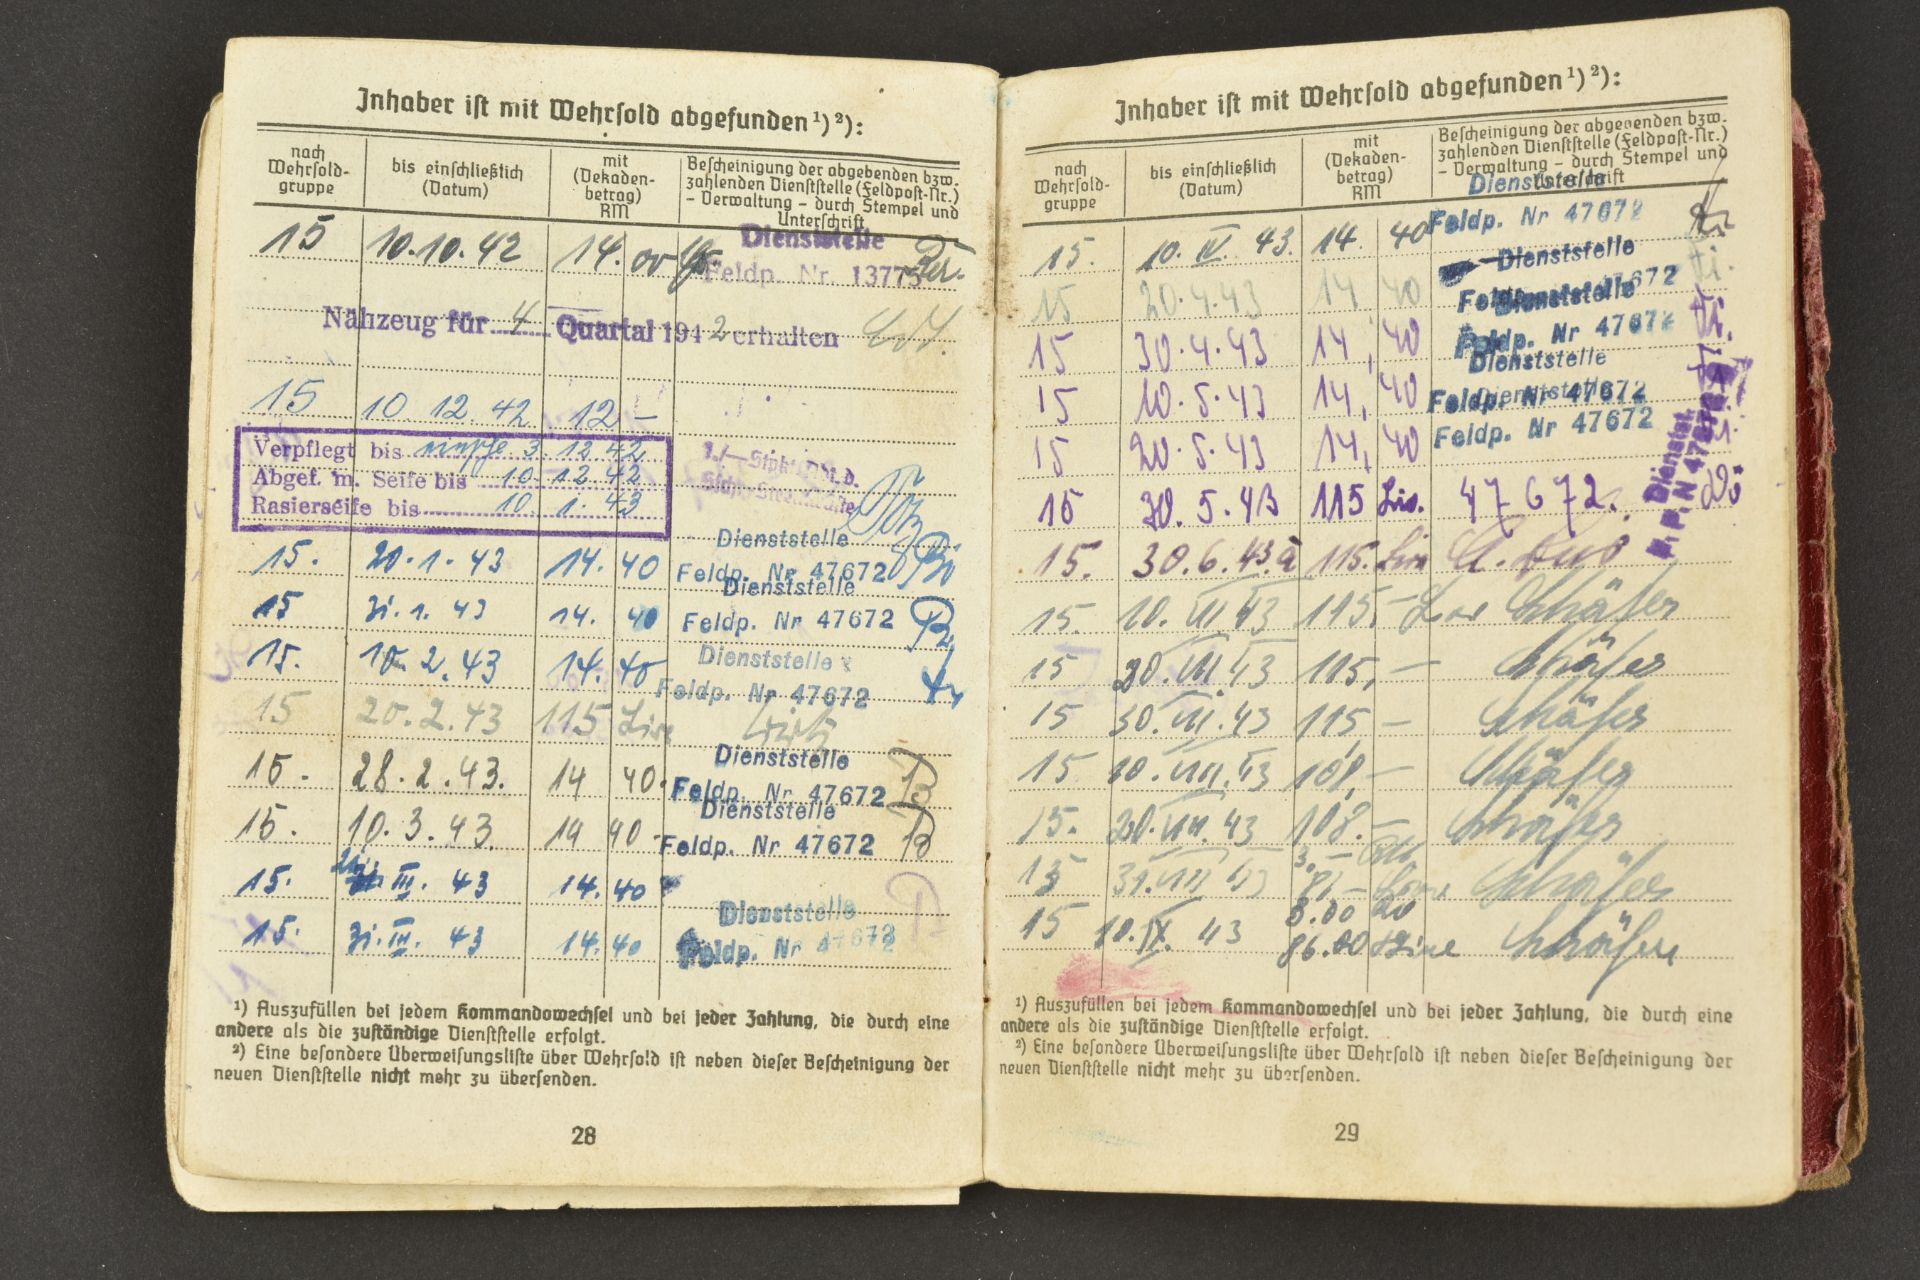 Inhaber ist mit Wehrsold abgefunden ¹) ²):
nach Wehrsold-gruppe
bis einschließlich (Datum)
mit (Dekaden-betrag) RM
Bescheinigung der abgebenden bzw. zahlenden Dienststelle (Feldpost-Nr.) – Verwaltung – durch Stempel und Unterschrift
15 10.10.42 14.00 Dienststelle
Feldp. Nr. 13775
Nähzeug für 4 Quartal 1942 erhalten
15 10 12.42 12 –
Verpflegt bis 3. 12.42
Abgef. m. Seife bis 10. 12.42
Rasierseife bis 10. 1. 43
15. 20.1.43 14.40 Dienststelle Feldp. Nr 47672
15 31.1.43 14.40 Dienststelle Feldp. Nr 47672
15. 10.2.43 14.40 Dienststelle Feldp. Nr 47672
15 20.2.43 115 Lire
15. 28.2.43. 14 40. Dienststelle Feldp. Nr 47672
15. 10.3.43. 14 40 Dienststelle Feldp. Nr 47672
15. III. 43 14.40
15. 31.III. 43 14.40 Dienststelle Feldp. Nr 47672
¹) Auszufüllen bei jedem Kommandowechsel und bei jeder Zahlung, die durch eine
andere als die zuständige Dienststelle erfolgt.
²) Eine besondere Überweisungsliste über Wehrsold ist neben dieser Bescheinigung der
neuen Dienststelle nicht mehr zu übersenden.
28
Inhaber ist mit Wehrsold abgefunden ¹) ²):
nach Wehrsold-gruppe
bis einschließlich (Datum)
mit (Dekaden-betrag) RM
Bescheinigung der abgebenden bzw. zahlenden Dienststelle (Feldpost-Nr.) – Verwaltung – durch Stempel und Unterschrift
15. 10. IV. 43. 14. 40 Dienststelle Feldp. Nr 47672
15 20.4.43 14 40 Dienststelle Feldp. Nr 47672
15 30.4.43 14, 40 Dienststelle Feldp. Nr 47672
15 10.5.43 14, 40 Dienststelle Feldp. Nr 47672
15 20.5.43 14, 40 Dienststelle Feldp. Nr 47672
15 30.5.43 115 Lir. 47672.
15. 30.6.43. à 115. Lire
15. 10. VII 43 115,– Schäfer
15 20. VII 43 115,– Schäfer
15 30. VII. 43 115 – Schäfer
15 10. VIII. 43 108,– Schäfer
15. 20. VIII. 43 108.– Schäfer
15 31. VIII 43 81 – Schäfer
15 10. IX. 43 8.00
86.00 Lire Schäfer
¹) Auszufüllen bei jedem Kommandowechsel und bei jeder Zahlung, die durch eine
andere als die zuständige Dienststelle erfolgt.
²) Eine besondere Überweisungsliste über Wehrsold ist neben dieser Bescheinigung der
neuen Dienststelle nicht mehr zu übersenden.
29